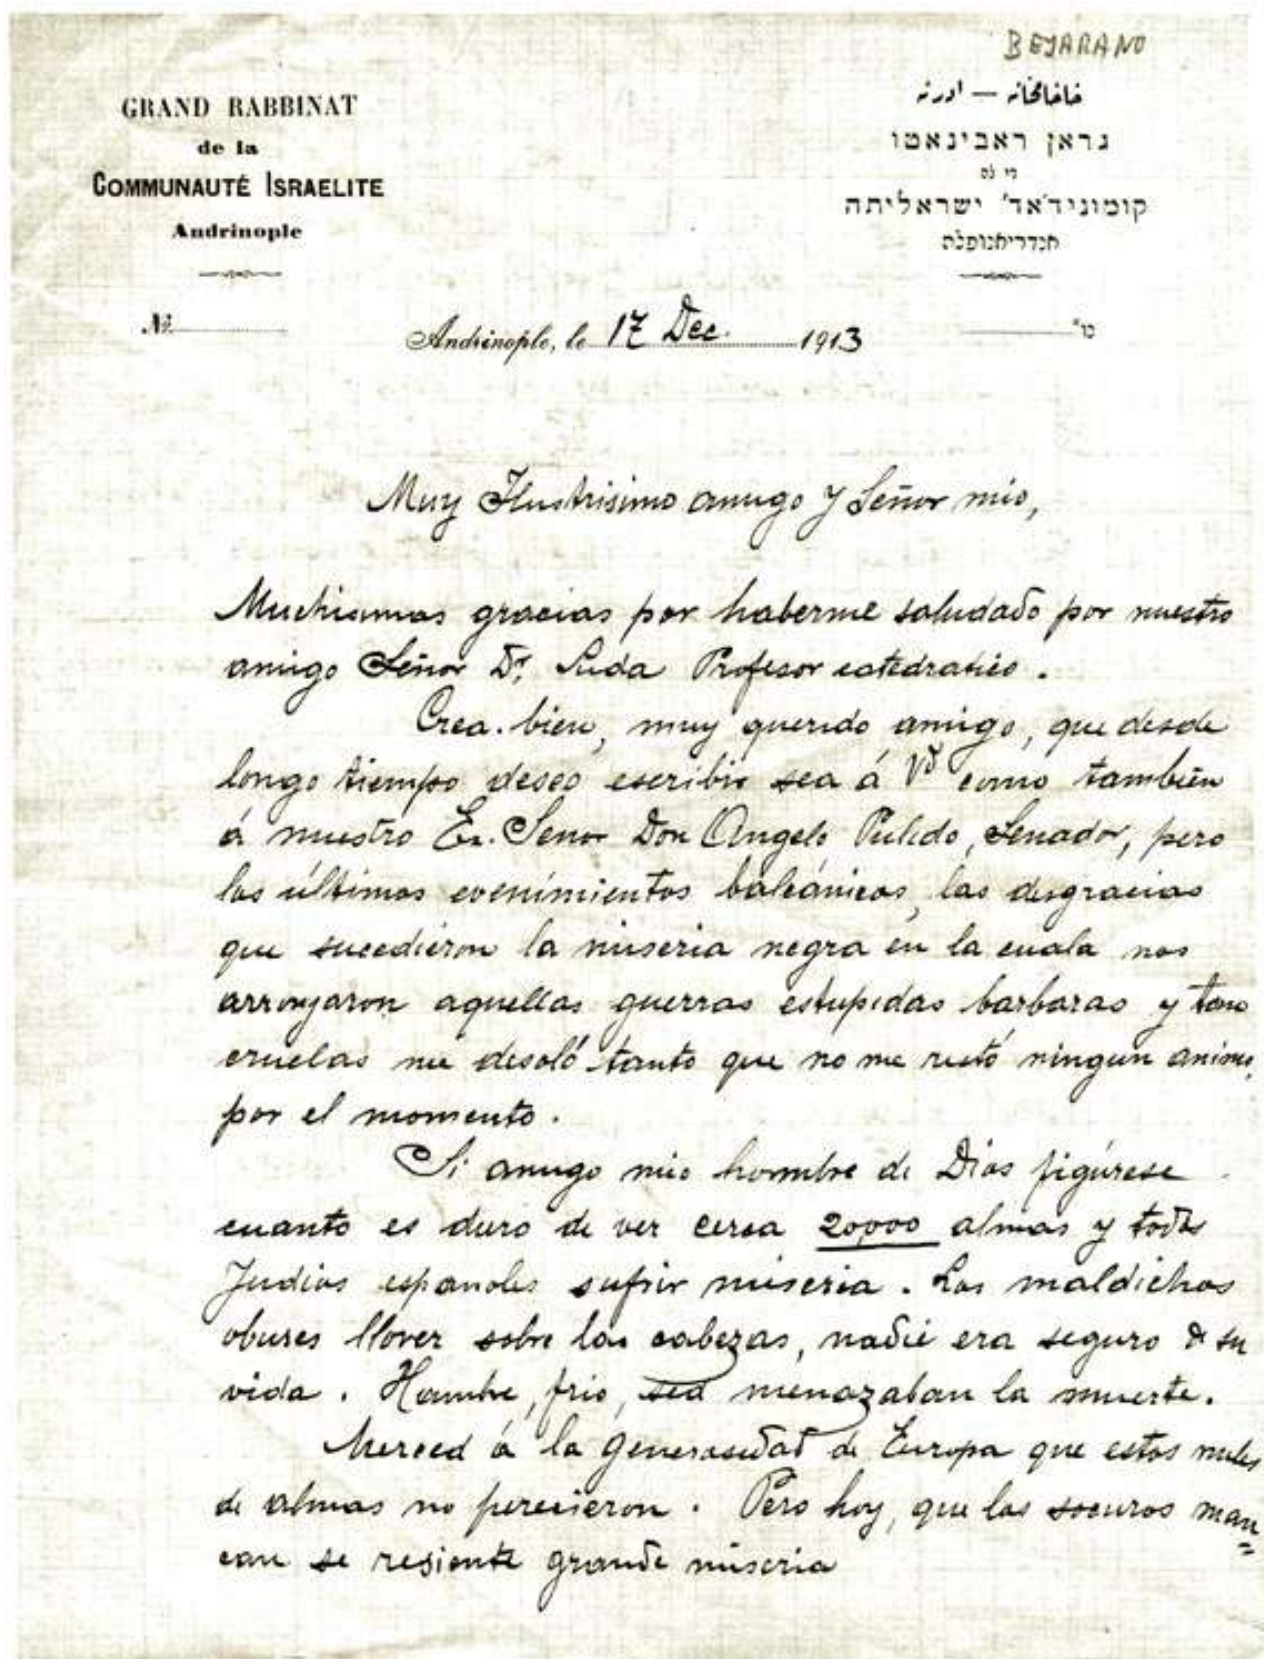 BEJARANO
GRAND RABBINAT
de la
COMMUNAUTÉ ISRAELITE
Andrinople
خاخامخانه — ادرنه
גראן ראבינאטו
די לה
קומוניד'אד' ישראליתה
אנדריאנופלה
№
Andrinople, le 17 Dec. 1913
Muy Ilustrisimo amigo y Señor mio,
Muchismas gracias por haberme saludado por nuestro
amigo Señor Dr. Profesor catedratico.
Crea bien, muy querido amigo, que desde
longo tiempo deseo escribir sea á Vd como también
á nuestro Ex. Senor Don Angelo Pulido, Senador, pero
los últimos evenimientos balcánicos, las desgracias
que sucedieron la miseria negra en la cuala nos
arronjaron aquellas guerras estupidas barbaras y tan
cruelas me desoló tanto que no me restó ningun animo
por el momento.
Si amigo mio hombre de Dios figúrese
cuanto es duro de ver cerca 20000 almas y todos
Judios espanoles sufrir miseria. Los maldichos
obuses llover sobre las cabezas, nadie era seguro de su
vida. Hambre, frio, sed menazaban la muerte.
Merced á la generosidad de Europa que estos miles
de almas no perecieron. Pero hoy, que los socuros man=
can se resiente grande miseria